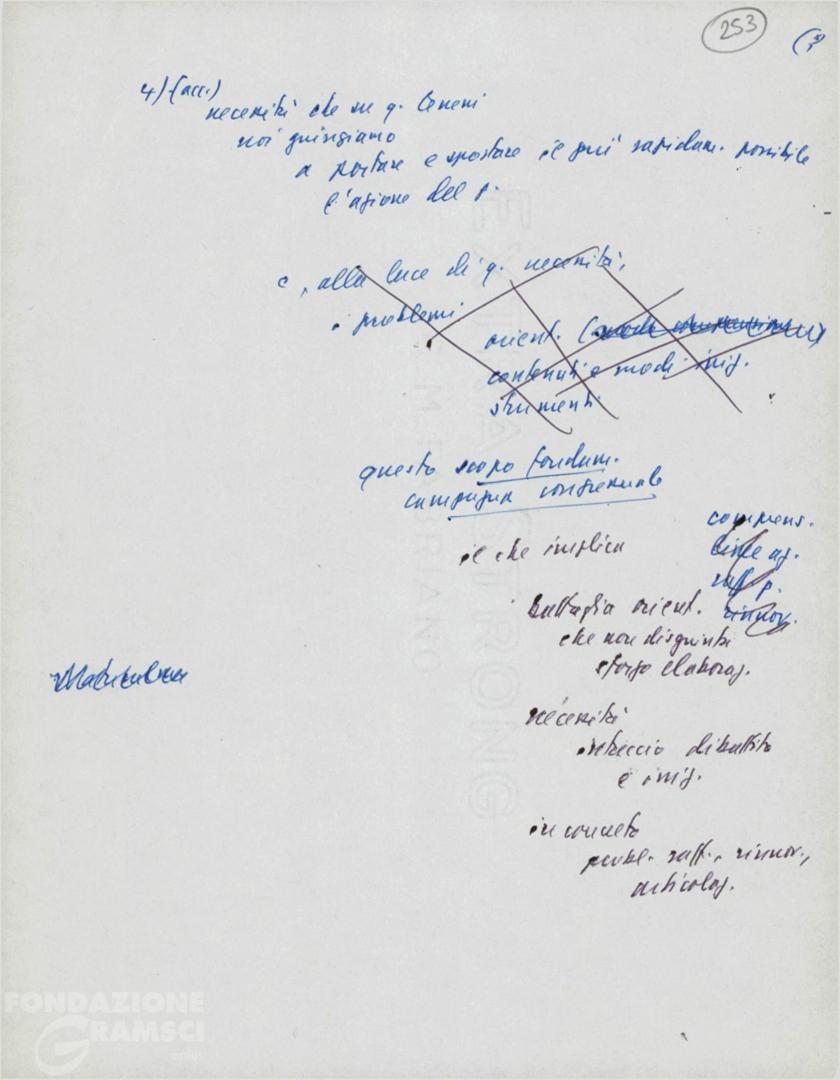 253
4) (acc.)
necessità che su q. terreni
noi spingiamo
a portare e spostare il più rapidam. possibile
l'azione del p.
e, alla luce di q. necessità,
i problemi
orient.
contenuti e modi iniz.
strumenti
questo scopo fondam.
campagna congressuale
il che implica
compens.
linee az.
raff. p.
rinnov.
battaglia orient.
che non disgiunta
sforzo elaboraz.
necessità
intreccio dibattito
e iniz.
in concreto
probl. raff., rinnov.,
articolaz.
EXTRA STRONG
C. M. FABRIANO
FONDAZIONE
GRAMSCI
onlus